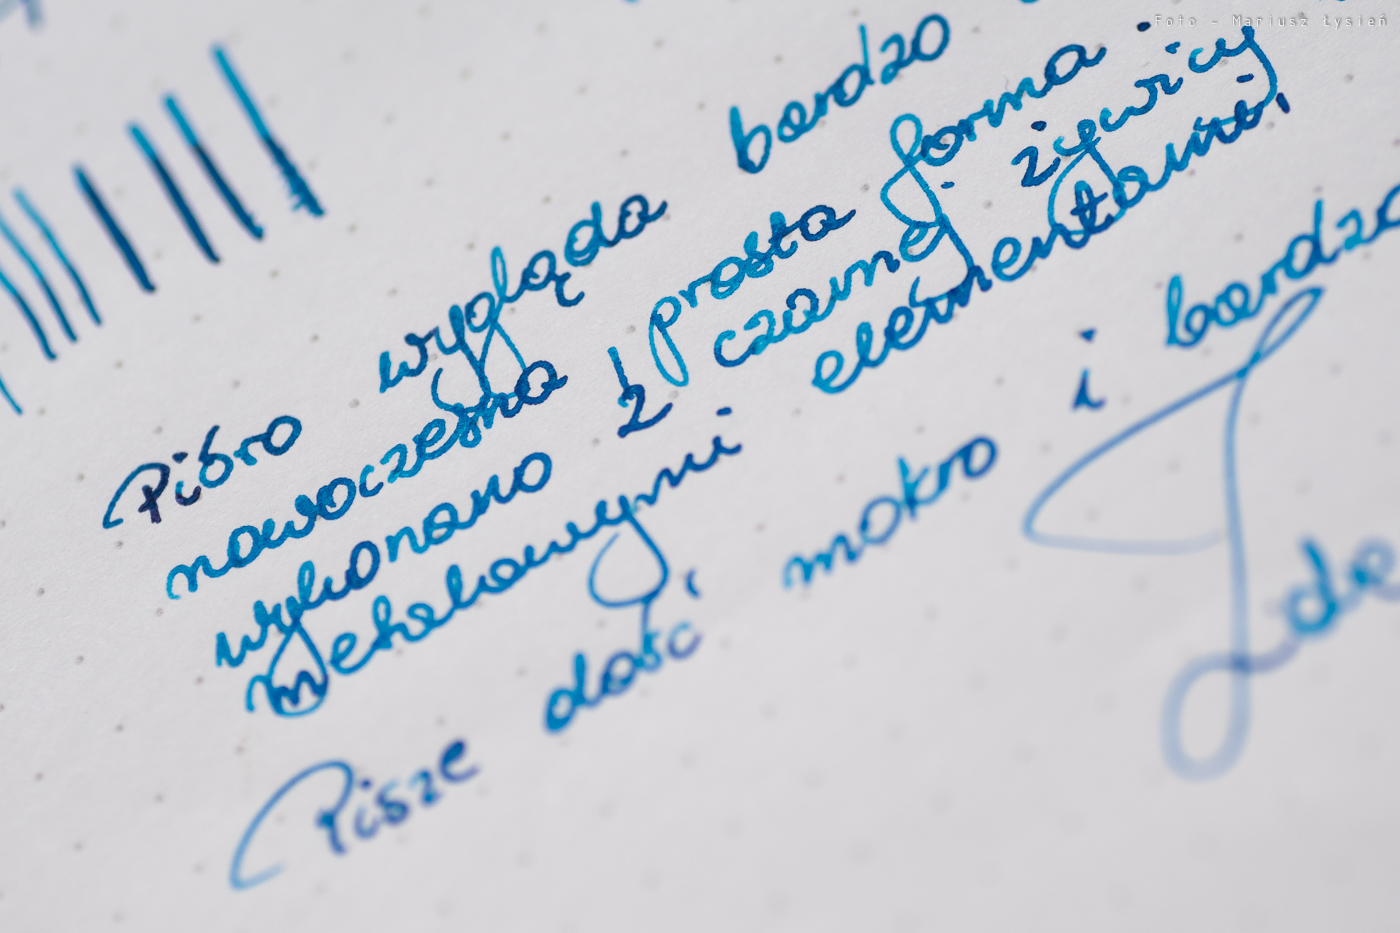 Foto - Mariusz Łysień
Pióro wygląda bardzo
nowocześnie, prosta forma.
wykonano z czarnej żywicy
metalowymi elementami.
Pisze dość mokro i bardzo
Ide